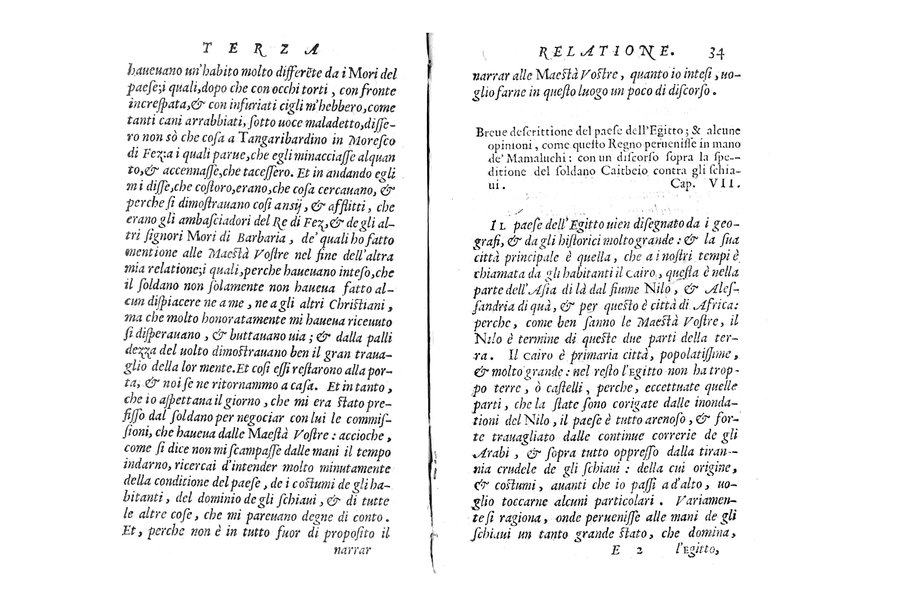 TERZA
haueuano un'habito molto differēte da i Mori del
paese; i quali, dopo che con occhi torti, con fronte
increspata, & con infuriati cigli m'hebbero, come
tanti cani arrabbiati, sotto uoce maladetto, disse-
ro non sò che cosa a Tangaribardino in Moresco
di Fez: a i quali parue, che egli minacciasse alquan
to, & accennasse, che tacessero. Et in andando egli
mi disse, che costoro, erano, che cosa cercauano, &
perche si dimostrauano cosi ansij, & afflitti, che
erano gli ambasciadori del Re di Fez, & de gli al-
tri signori Mori di Barbaria, de' quali ho fatto
mentione alle Maestà Vostre nel fine dell'altra
mia relatione; i quali, perche haueuano inteso, che
il soldano non solamente non haueua fatto al-
cun dispiacere ne a me, ne a gli altri Christiani,
ma che molto honoratamente mi haueua riceuuto
si disperauano, & buttauano uia; & dalla palli
dezza del uolto dimostrauano ben il gran traua-
glio della lor mente. Et cosi essi restarono alla por-
ta, & noi se ne ritornammo a casa. Et in tanto,
che io aspettana il giorno, che mi era stato pre-
fisso dal soldano per negociar con lui le commis-
sioni, che haueua dalle Maestà Vostre: accioche,
come si dice non mi scampasse dalle mani il tempo
indarno, ricercai d'intender molto minutamente
della conditione del paese, de i costumi de gli ha-
bitanti, del dominio de gli schiaui, & di tutte
le altre cose, che mi pareuano degne di conto.
Et, perche non è in tutto fuor di proposito il
narrar
RELATIONE. 34
narrar alle Maestà Vostre, quanto io intesi, uo-
glio farne in questo luogo un poco di discorso.
Breue descrittione del paese dell'Egitto; & alcune
opinioni, come questo Regno peruenisse in mano
de' Mamaluchi: con un discorso sopra la spe-
ditione del soldano Caitbeio contra gli schia-
ui. Cap. VII.
IL paese dell'Egitto uien disegnato da i geo-
grafi, & da gli historici molto grande: & la sua
città principale è quella, che a i nostri tempi è
chiamata da gli habitanti il Cairo, questa è nella
parte dell'Asia di là dal fiume Nilo, & Ales-
sandria di quà, & per questo è città di Africa:
perche, come ben sanno le Maestà Vostre, il
Nilo è termine di queste due parti della ter-
ra. Il Cairo è primaria città, popolatissime,
& molto grande: nel resto l'Egitto non ha trop-
po terre, ò castelli, perche, eccettuate quelle
parti, che la state sono corigate dalle inonda-
tioni del Nilo, il paese è tutto arenoso, & for-
te trauagliato dalle continue correrie de gli
Arabi, & sopra tutto oppresso dalla tiran-
nia crudele de gli schiaui: della cui origine,
& costumi, auanti che io passi ad'alto, uo-
glio toccarne alcuni particolari. Variamen-
te si ragiona, onde peruenisse alle mani de gli
schiaui un tanto grande stato, che domina,
E 2 l'Egitto,